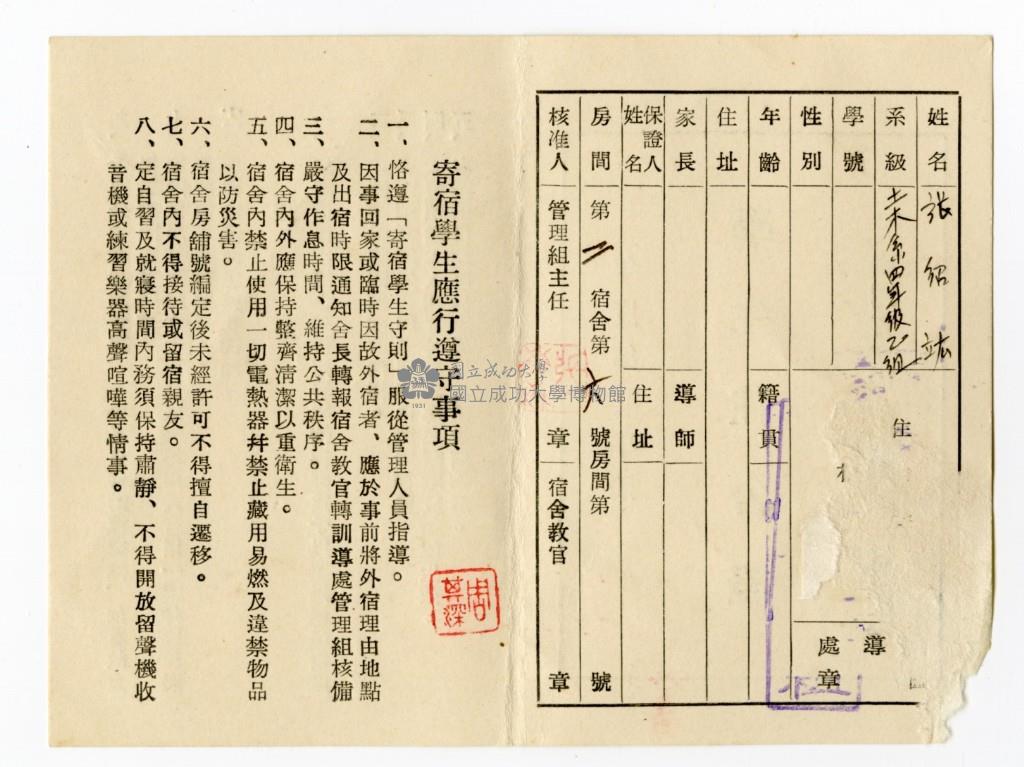 姓名 張紹竑
系級 土木系四年級乙組
住
學號
性別
導
處章
年齡
籍貫
住址
家長
導師
保證人姓名
住址
房間 第 二 宿舍第 六 號房間第 號
核准人 管理組主任 章 宿舍教官 章
周其深
寄宿學生應行遵守事項
一、恪遵「寄宿學生守則」服從管理人員指導。
二、因事回家或臨時因故外宿者、應於事前將外宿理由地點
及出宿時限通知舍長轉報宿舍教官轉訓導處管理組核備
三、嚴守作息時間、維持公共秩序。
四、宿舍內外應保持整齊清潔以重衛生。
五、宿舍內禁止使用一切電熱器幷禁止藏用易燃及違禁物品
以防災害。
六、宿舍房舖號編定後未經許可不得擅自遷移。
七、宿舍內不得接待或留宿親友。
八、定自習及就寢時間內務須保持肅靜、不得開放留聲機收
音機或練習樂器高聲喧嘩等情事。
國立成功大學
國立成功大學博物館
1931